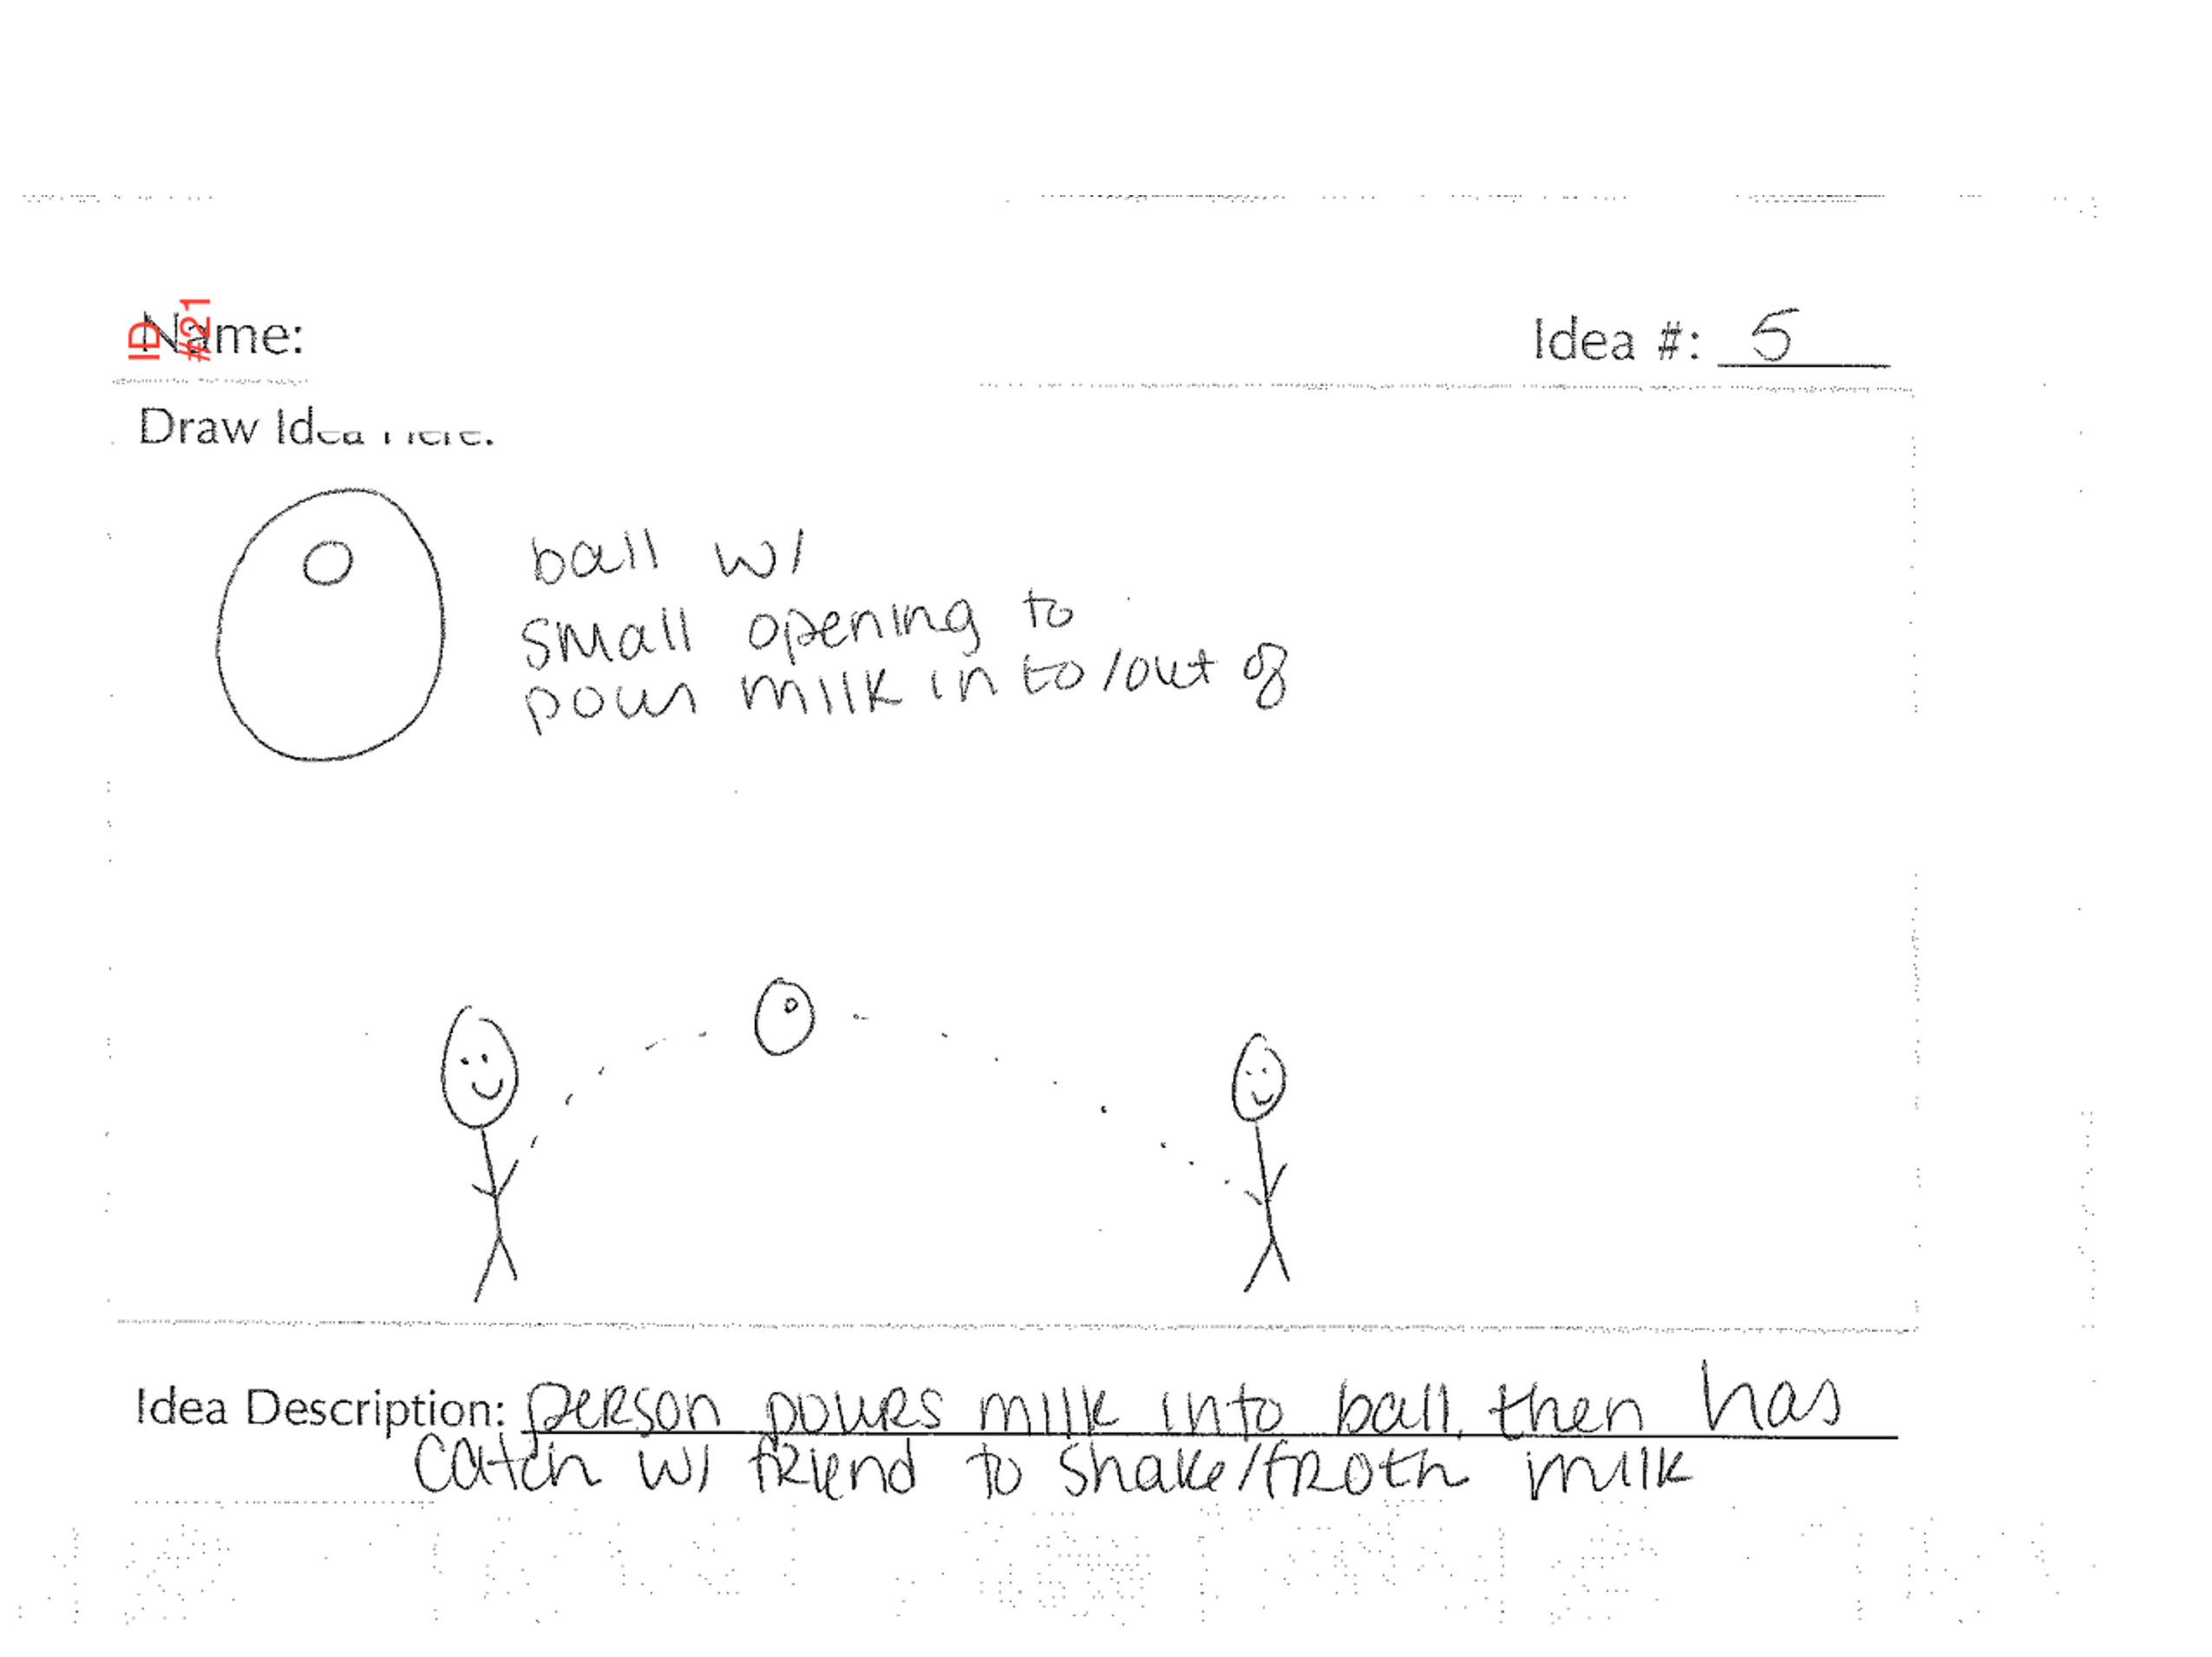 ID
#21
Name:
Idea #: 5
Draw Idea Here:
ball w/
small opening to
pour milk in to/out of
Idea Description: person pours milk into ball, then has
catch w/ friend to shake/froth milk